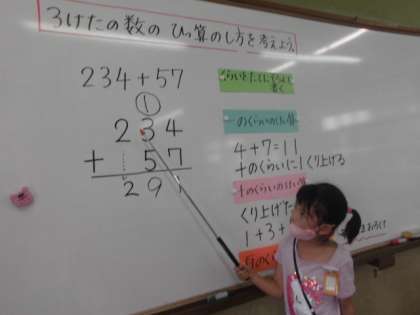 3けたの数の ひっ算のし方を考えよう
234+57
①
234
+ 57
291
くらいをたてにそろえて書く
一のくらいのたし算
4+7=11
十のくらいに1くり上げる
十のくらいのたし算
くり上げた
1+3+